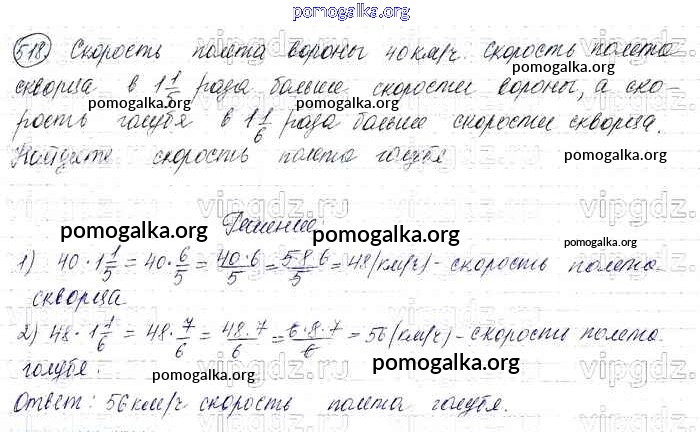 pomogalka.org
518) Скорость полета вороны 40 км/ч. Скорость полета
скворца в 1 1/5 раза больше скорости вороны, а ско-
pomogalka.org pomogalka.org
рость голубя в 1 1/6 раза больше скорости скворца.
Найдите скорость полета голубя
pomogalka.org
vipgdz.ru vipgdz.ru
Решение:
pomogalka.org pomogalka.org
1) 40 · 1 1/5 = 40 · 6/5 = 40 · 6/5 = 5 · 8 · 6/5 = 48 (км/ч) - скорость полета
скворца
2) 48 · 1 1/6 = 48 · 7/6 = 48 · 7/6 = 6 · 8 · 7/6 = 56 (км/ч) - скорость полета
голубя.
pomogalka.org pomogalka.org
Ответ: 56 км/ч скорость полета голубя.